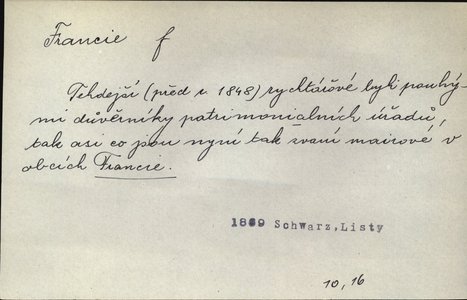 Francie f
Tehdejší (před r. 1848) rychtářové byli pouhý-
mi důvěrníky patrimonialních úřadů,
tak asi co jsou nyní tak zvaní mairové v
obcích Francie.
1869 Schwarz,Listy
10,16